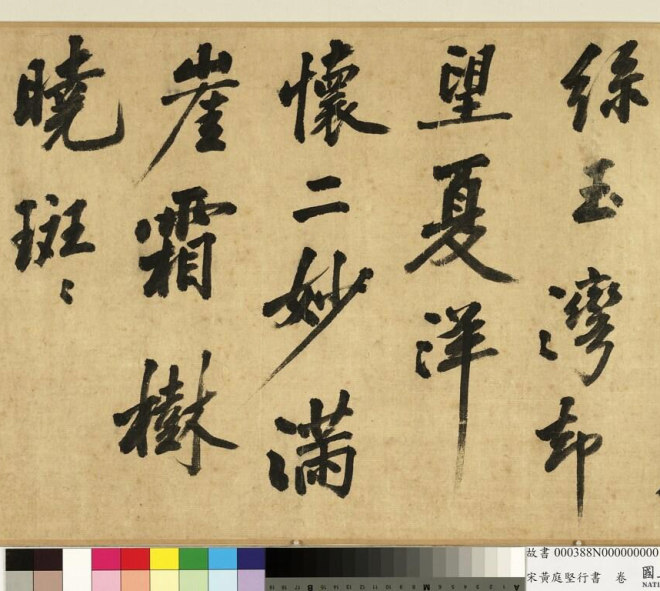 綠玉灣却
望夏洋
懷二妙滿
崖霜樹
曉斑〻
故書 000388N000000000
宋黃庭堅行書 卷
國